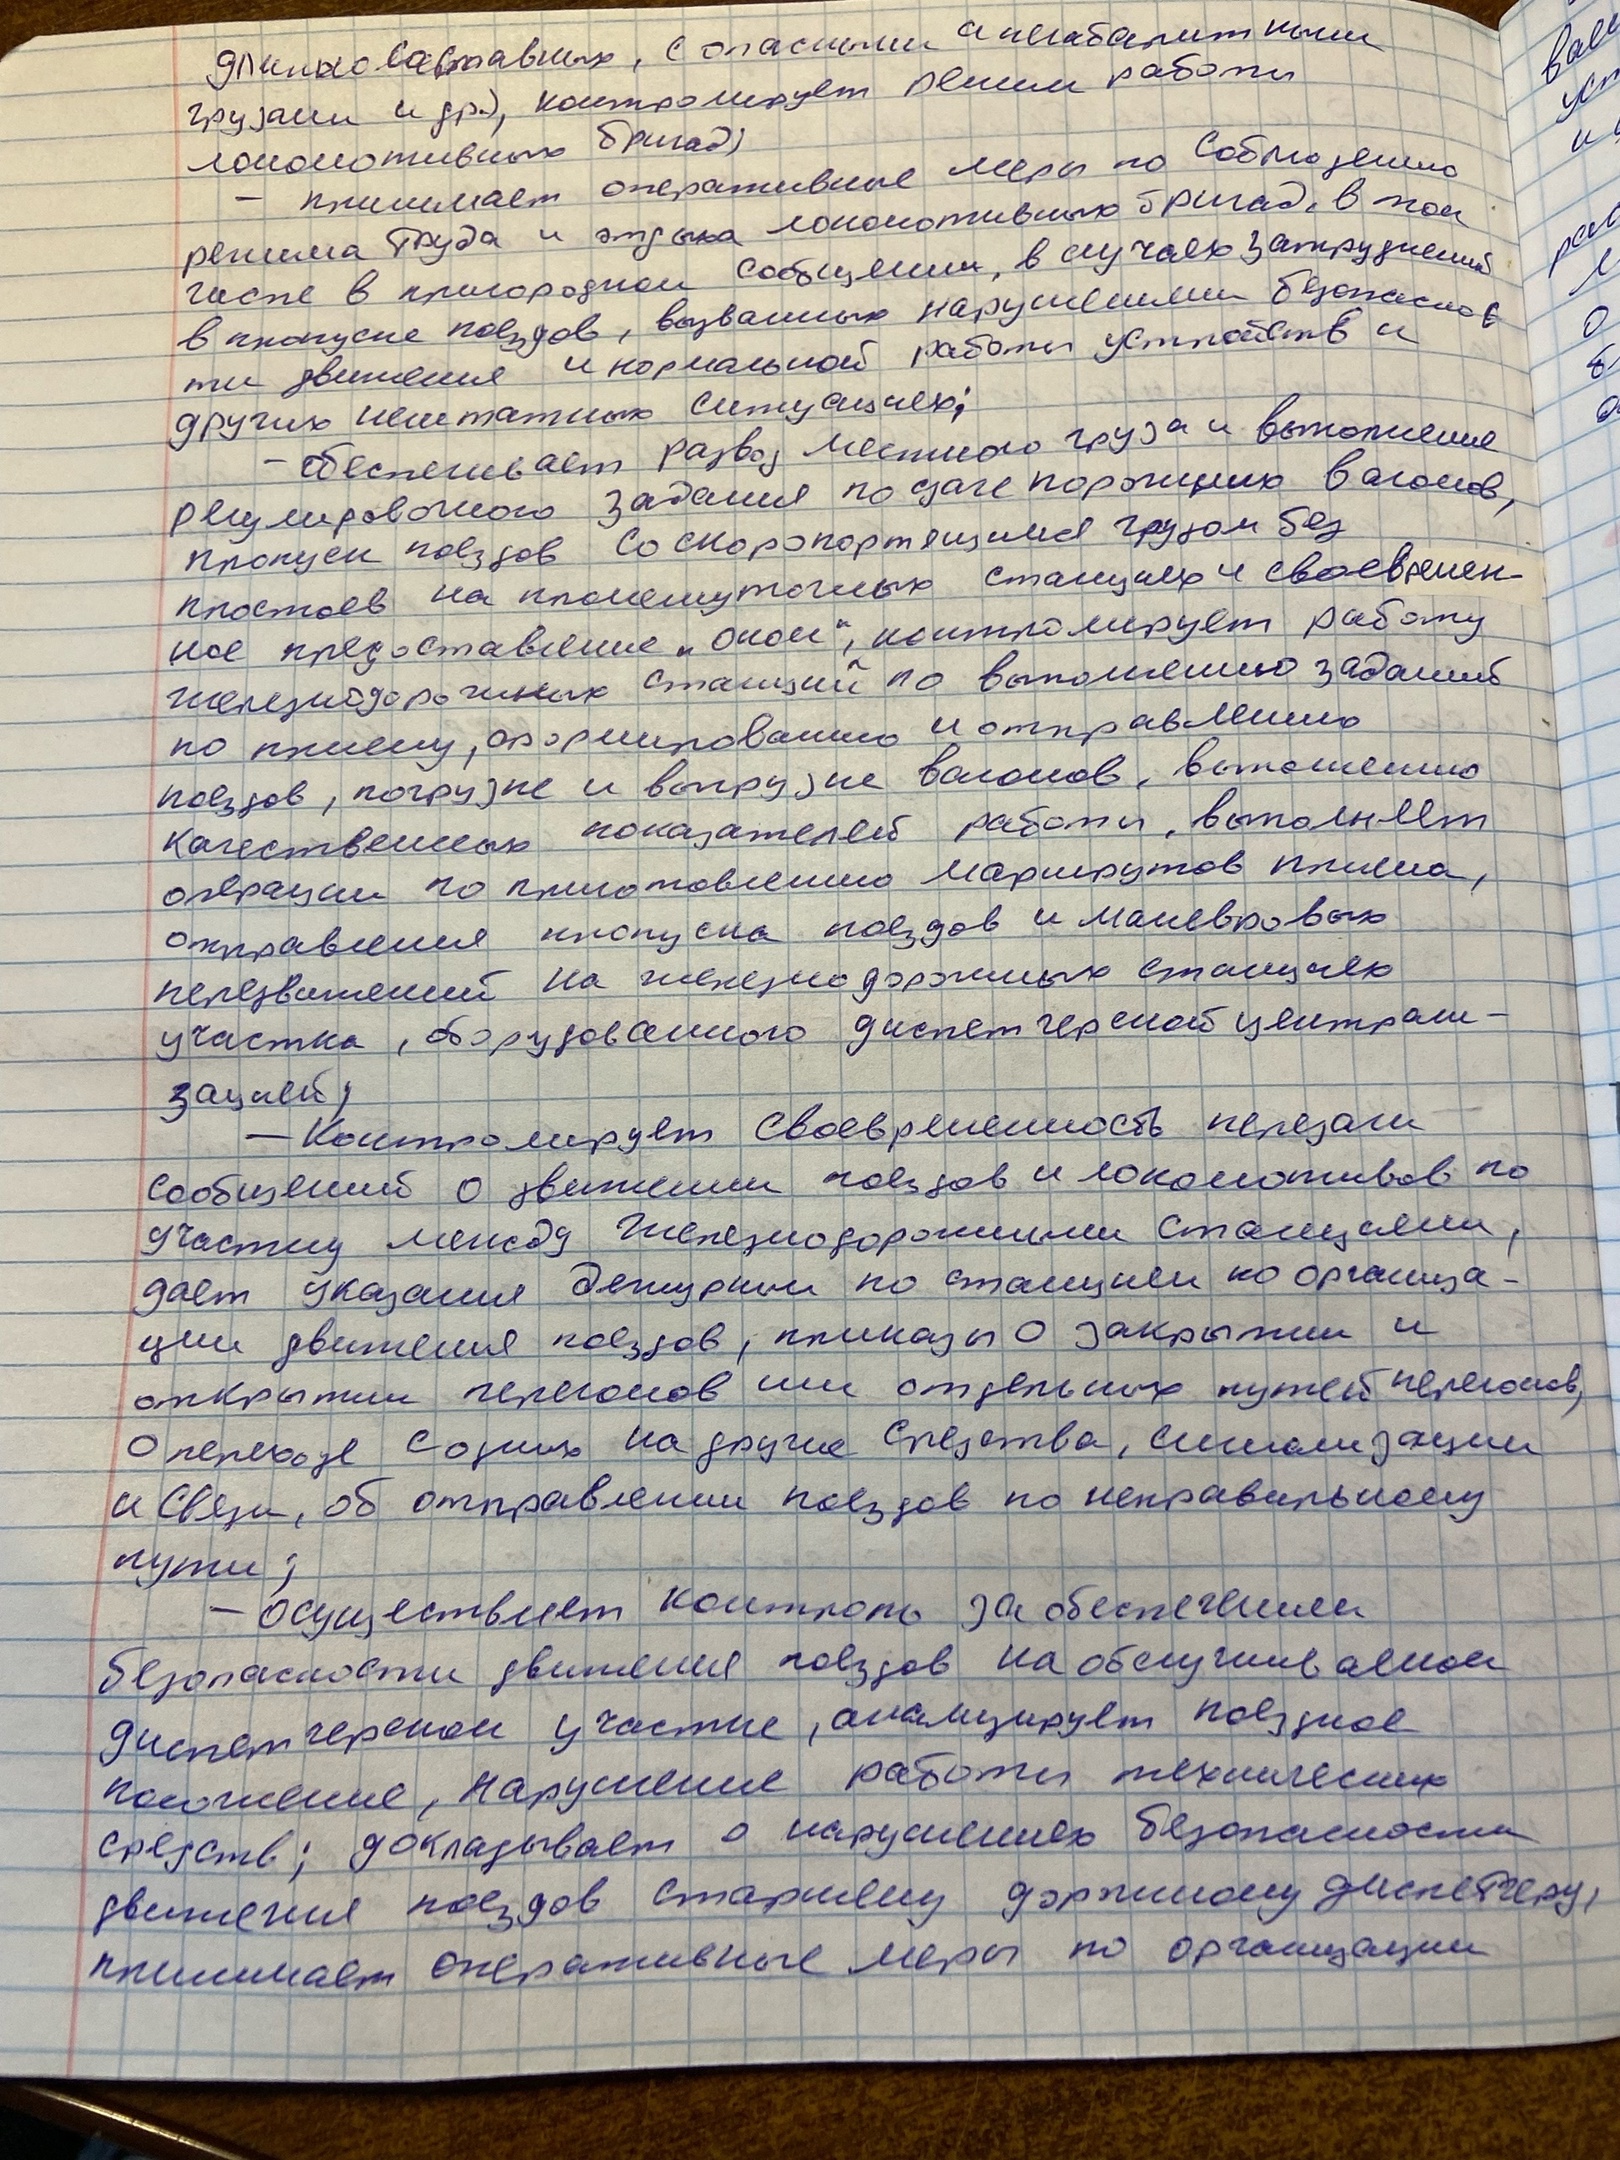 длинносоставных, с опасными и негабаритными
грузами и др.), контролирует режим работы
локомотивных бригад;
- принимает оперативные меры по соблюдению
режима труда и отдыха локомотивных бригад, в том
числе в пригородном сообщении, в случаях затруднений
в пропуске поездов, вызванных нарушениями безопаснос
ти движения и нормальной работы устройств и
других нештатных ситуациях;
- обеспечивает развоз местного груза и выполнение
регулировочного задания по сдаче порожних вагонов,
пропуск поездов со скоропортящимся грузом без
простоев на промежуточных станциях и своевремен-
ное предоставление „окон", контролирует работу
железнодорожных станций по выполнению заданий
по приему, формированию и отправлению
поездов, погрузке и выгрузке вагонов, выполнению
качественных показателей работы, выполняет
операции по приготовлению маршрутов приема,
отправления пропуска поездов и маневровых
передвижений на железнодорожных станциях
участка, оборудованного диспетчерской централи-
зацией;
- Контролирует своевременность передачи
сообщений о движении поездов и локомотивов по
участку между железнодорожными станциями,
дает указания дежурным по станциям по организа-
ции движения поездов, приказы о закрытии и
открытии перегонов или отдельных путей перегонов,
о переходе с одних на другие средства, сигнализации
и связи, об отправлении поездов по неправильному
пути;
- осуществляет контроль за обеспечением
безопасности движения поездов на обслуживаемом
диспетчерском участке, анализирует поездное
положение, нарушение работы технических
средств; докладывает о нарушениях безопасности
движения поездов старшему дорожному диспетчеру,
принимает оперативные меры по организации